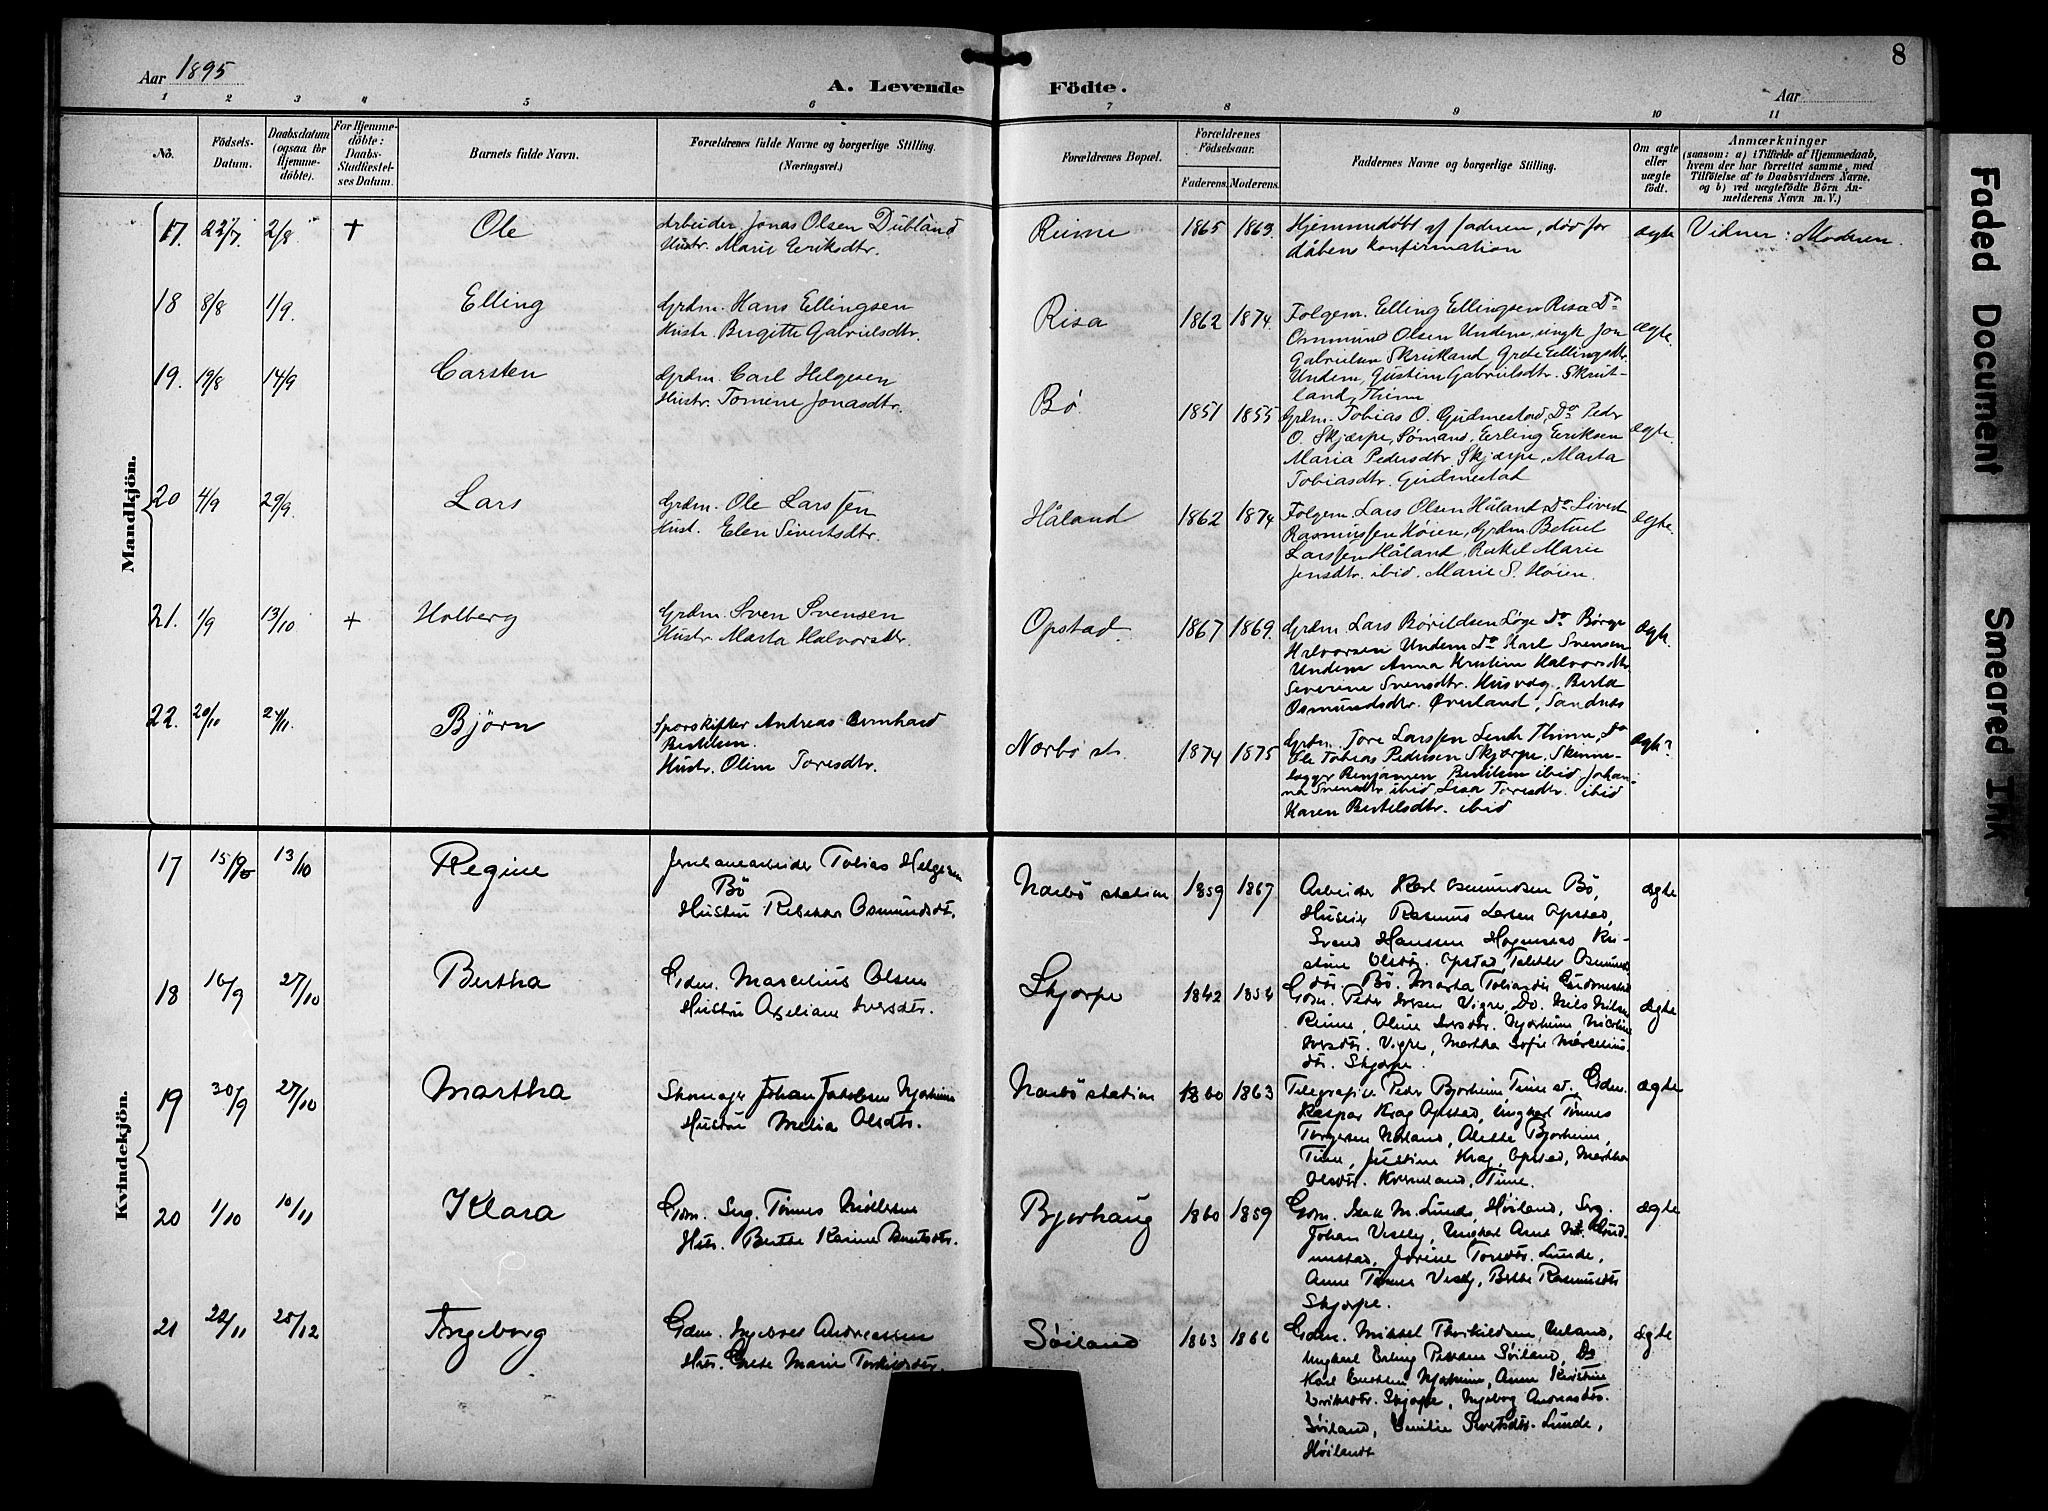 8
Aar 1895
A. Levende Födte.
Aar
1 2 3 4 5 6 7 8 9 10 11
No.
Födsels-Datum.
Daabsdatum (ogsaa for Hjemmedöbte).
For Hjemmedöbte: Daabs-Stadfestelses Datum.
Barnets fulde Navn.
Forældrenes fulde Navne og borgerlige Stilling. (Næringsvei.)
Forældrenes Bopæl.
Forældrenes Födselsaar.
Faderens. Moderens.
Faddernes Navne og borgerlige Stilling.
Om ægte eller uægte födt.
Anmærkninger
(saasom: a) i Tilfælde af Hjemmedaab,
hvem der har forrettet samme, med
Tilföielse af to Daabsvidners Navne.
og b) ved uægtefödte Börn An-
melderens Navn m. V.)
Mandkjön.
17. 22/7 2/8 + Ole
Arbeider Jonas Olsen Dubland
Hustr. Marie Eriksdtr.
Reime 1865 1863.
Hjemmedöbt af faderen, död før
dåbens konfirmation
ægte Vidner: Moderen.
18 8/8 1/9. Elling
Grdm. Hans Ellingsen
Hustr. Birgitte Gabrielsdtr.
Risa 1862 1874.
Folgem. Elling Ellingsen Risa Do
Ommund Olsen Undem, ungk. Jon
Gabrielsen Skrutland, Grete Ellingsdtr.
Undem, Gustine Gabrielsdtr. Skrut-
land, Thime
ægte.
19. 19/8 14/9 Carsten
Grdm. Carl Helgesen
Hustr. Tomine Jonasdtr.
Bø. 1851 1855
Grdm. Tobias O. Gudmestad, Do Peder
O. Skjærpe, Sømand, Erling Eriksen
Maria Pedersdtr. Skjærpe, Marta
Tobiasdtr. Gudmestad
ægte.
20 4/9 29/9. Lars
Grdm. Ole Larssen
Hust. Elen Sivertsdtr.
Håland 1862 1874
Folgem. Lars Olsen Håland Do Sivert
Rasmussen Høien, Grdm Betuel
Larssen Håland, Rakel Marie
Jensdtr. ibid, Marie S. Høien.
ægte.
21. 1/9 13/10 + Holberg
Grdm. Sven Svensen
Hustr. Marta Halvorsdtr.
Opstad. 1867 1869.
Grdm. Lars Børildsen Løge Do Børge
Halvorsen Undem Do Karl Svensen
Undem Anna Kristine Halvorsdtr.
Severine Svensdtr. Husvæg, Berta
Osmundsdtr. Øverland, Sandnes
ægte.
22. 20/10 24/11. Bjørn
Sporskifter Andreas Bernhard
Bertelsen.
Hustr. Oline Toresdtr.
Nærbø st. 1874 1875
Grdm. Tore Larssen Lende Thime, Do
Ole Tobias Pedersen Skjærpe, Skinne-
lægger Benjamin Bertelsen ibid, Johan-
na Svensdtr. ibid, Lisa Toresdtr. ibid
Karen Bertelsdtr. ibid
ægte
Kvindekjön.
17 15/9 13/10 Regine
Jernbanearbeider Tobias Helgesen
Bö
Hustru Rebekka Osmundsdtr.
Nærbö station 1859 1867
Arbeider Karl Osmundsen Bö,
Huseier Rasmus Larsen Opstad,
Svend Hanssen Hognestad Kri-
stine Olsdtr. Opstad Talette Osmunds
dtr. Bö. Marta Tobiasdtr Gudmestad
ægte
18 16/9 27/10 Bertha
Gdm. Marcelius Olsen
Hustru Axeliane Iversdtr.
Skjorpe 1862 1854
Gdm. Peder Iversen Vigre, Do. Nils Nilsen
Reime, Oline Iversdtr. Njærheim, Nicoline
Iversdtr. Vigre, Martha Sofie Marcelius-
dtr. Skjorpe.
ægte
19 30/9 27/10 Martha
Skomager Johan Jakobsen Njærheim
Hustru Melia Olsdtr.
Nærbö station 1860 1863
Telegrafist Peder Bjorheim, Time st. Gdm.
Kaspar Krag Opstad, Ungkarl Tönnes
Torgersen Nærland, Alette Bjorheim,
Time, Justine Krag, Opstad, Martha
Olsdtr. Kverneland, Time.
ægte
20 1/10 10/11 Klara
Gdm. Serg. Tönnes Nielsen
Hstr. Berthe Karine Berntsdtr.
Bjorhaug 1860 1859
Gdm. Isak M. Lunde, Höiland, Serg.
Johan Vestly, Ungkarl Arnt N. Gud-
mestad, Jorine Torsdtr. Lunde,
Anne Tönnes Vestly, Berthe Rasmusdtr
Skjorpe.
ægte
21 22/11 25/12 Ingeborg
Gdm. Ingebret Andreassen
Hstr. Grete Marie Torkildsdtr.
Söiland 1863 1866
Gdm. Mikkel Thorkildsen, Ueland,
Ungkarl Erling Persen Söiland, Do
Karl Knudsen Njærheim, Anne Kristine
Eriksdtr. Skjorpe, Ingeborg Andreasdtr.
Söiland, Emilie Sivertsdtr. Lunde,
Höilandt
ægte
Faded Document
Smeared Ink